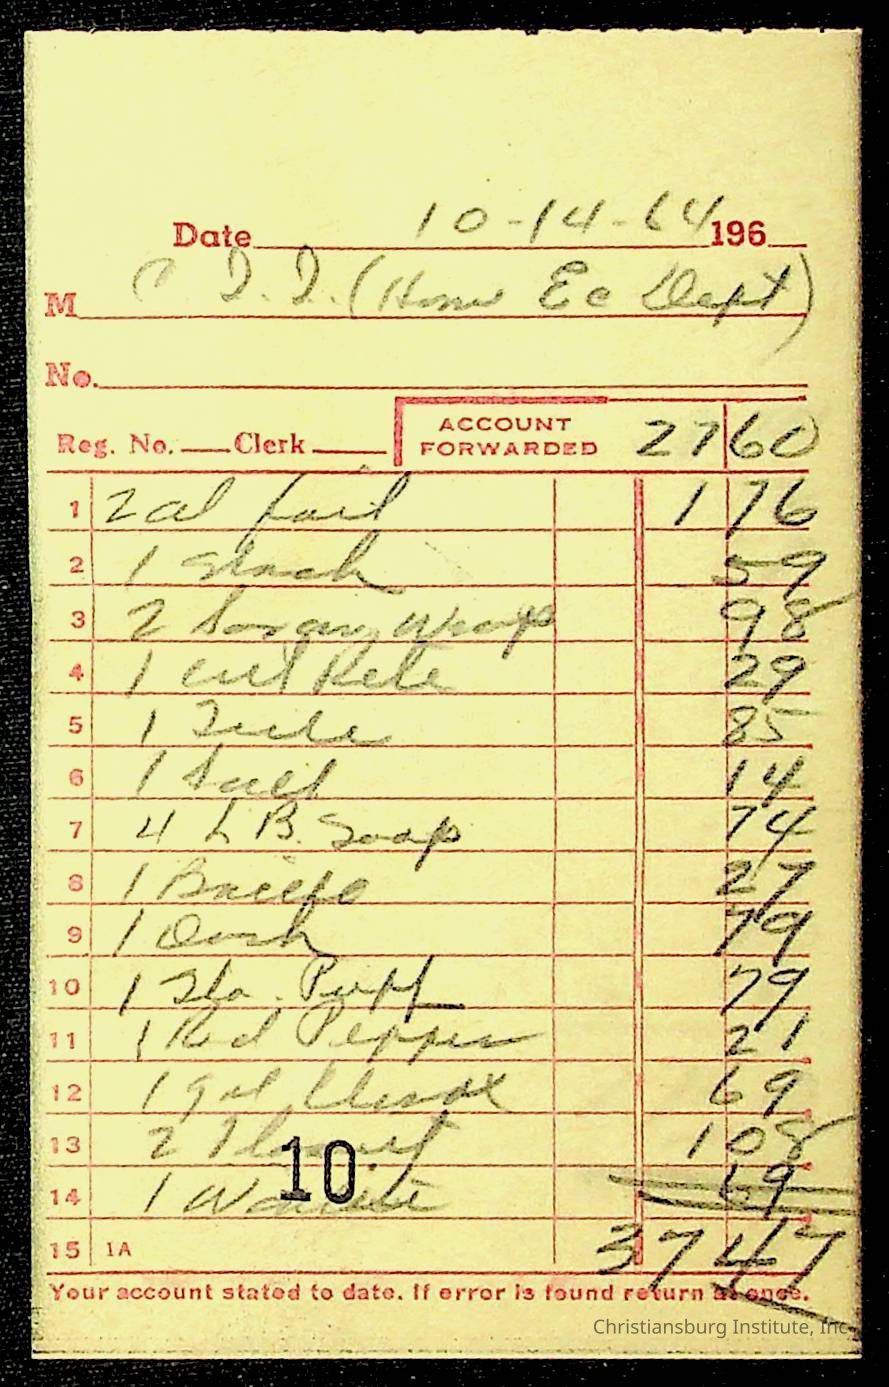 Date 10-14-64 196
M C. I. I. (Home Ec Dept)
No.
Reg. No. Clerk ACCOUNT FORWARDED 27 60
1 2 al foil 1 76
2 1 starch 59
3 2 Saran Wrap 98
4 1 cut Rite 29
5 1 Tide 85
6 1 Salt 14
7 4 L B. Soap 74
8 1 Brillo 27
9 1 Dash 79
10 1 Sta. Puff 79
11 1 Red Pepper 21
12 1 gal Clorox 69
13 2 1 08
10
14 1 69
15 1A 37 47
Your account stated to date. If error is found return at once.
Christiansburg Institute, Inc.